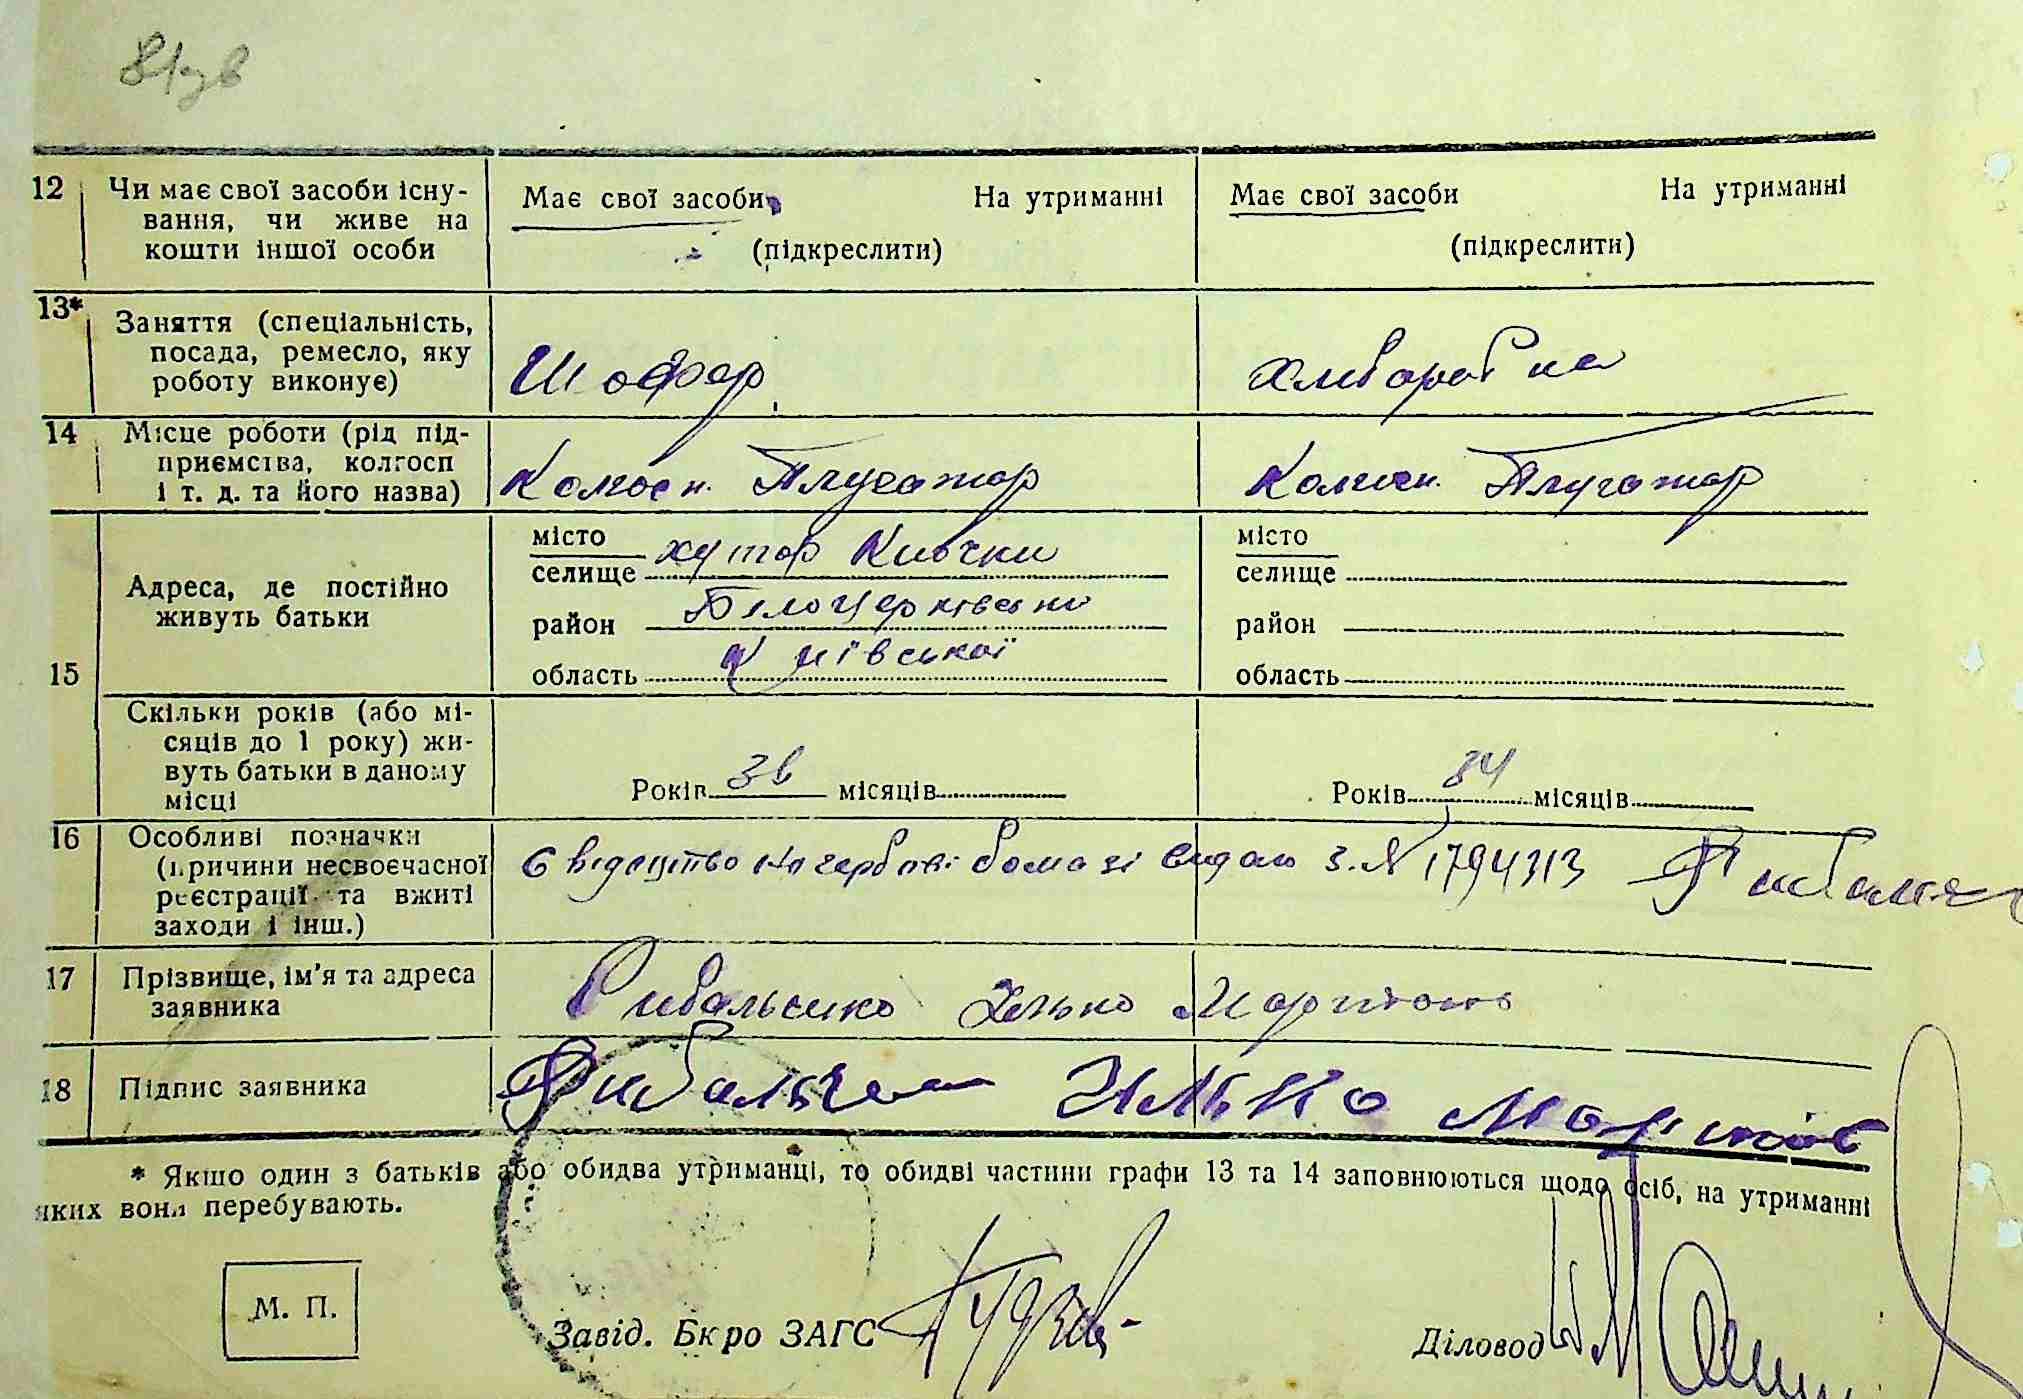 12 Чи має свої засоби існу-
вання, чи живе на
кошти іншої особи
Має свої засоби На утриманні
(підкреслити)
Має свої засоби На утриманні
(підкреслити)
13* Заняття (спеціальність,
посада, ремесло, яку
роботу виконує)
Шофер
Хлиборобка
14 Місце роботи (рід під-
приємства, колгосп
і т. д. та його назва)
Колгосп. Плугатар
Колгосп. Плугатар
15 Адреса, де постійно
живуть батьки
місто
селище хутор Кивчки
район Білоцерківськи
область Київської
місто
селище
район
область
Скільки років (або мі-
сяців до 1 року) жи-
вуть батьки в даному
місці
Років 36 місяців
Років 34 місяців
16 Особливі позначки
(причини несвоєчасної
реєстрації та вжиті
заходи і інш.)
Свідоцтво на гербові бомазі видано з. № 1794313
17 Прізвище, ім'я та адреса
заявника
Рибальченко Ілько Мартинов
18 Підпис заявника
Рибальчен Илько Мартинов
* Якшо один з батьків або обидва утриманці, то обидві частини графи 13 та 14 заповнюються щодо осіб, на утриманні
яких вони перебувають.
М. П.
Завід. Бюро ЗАГС
Діловод